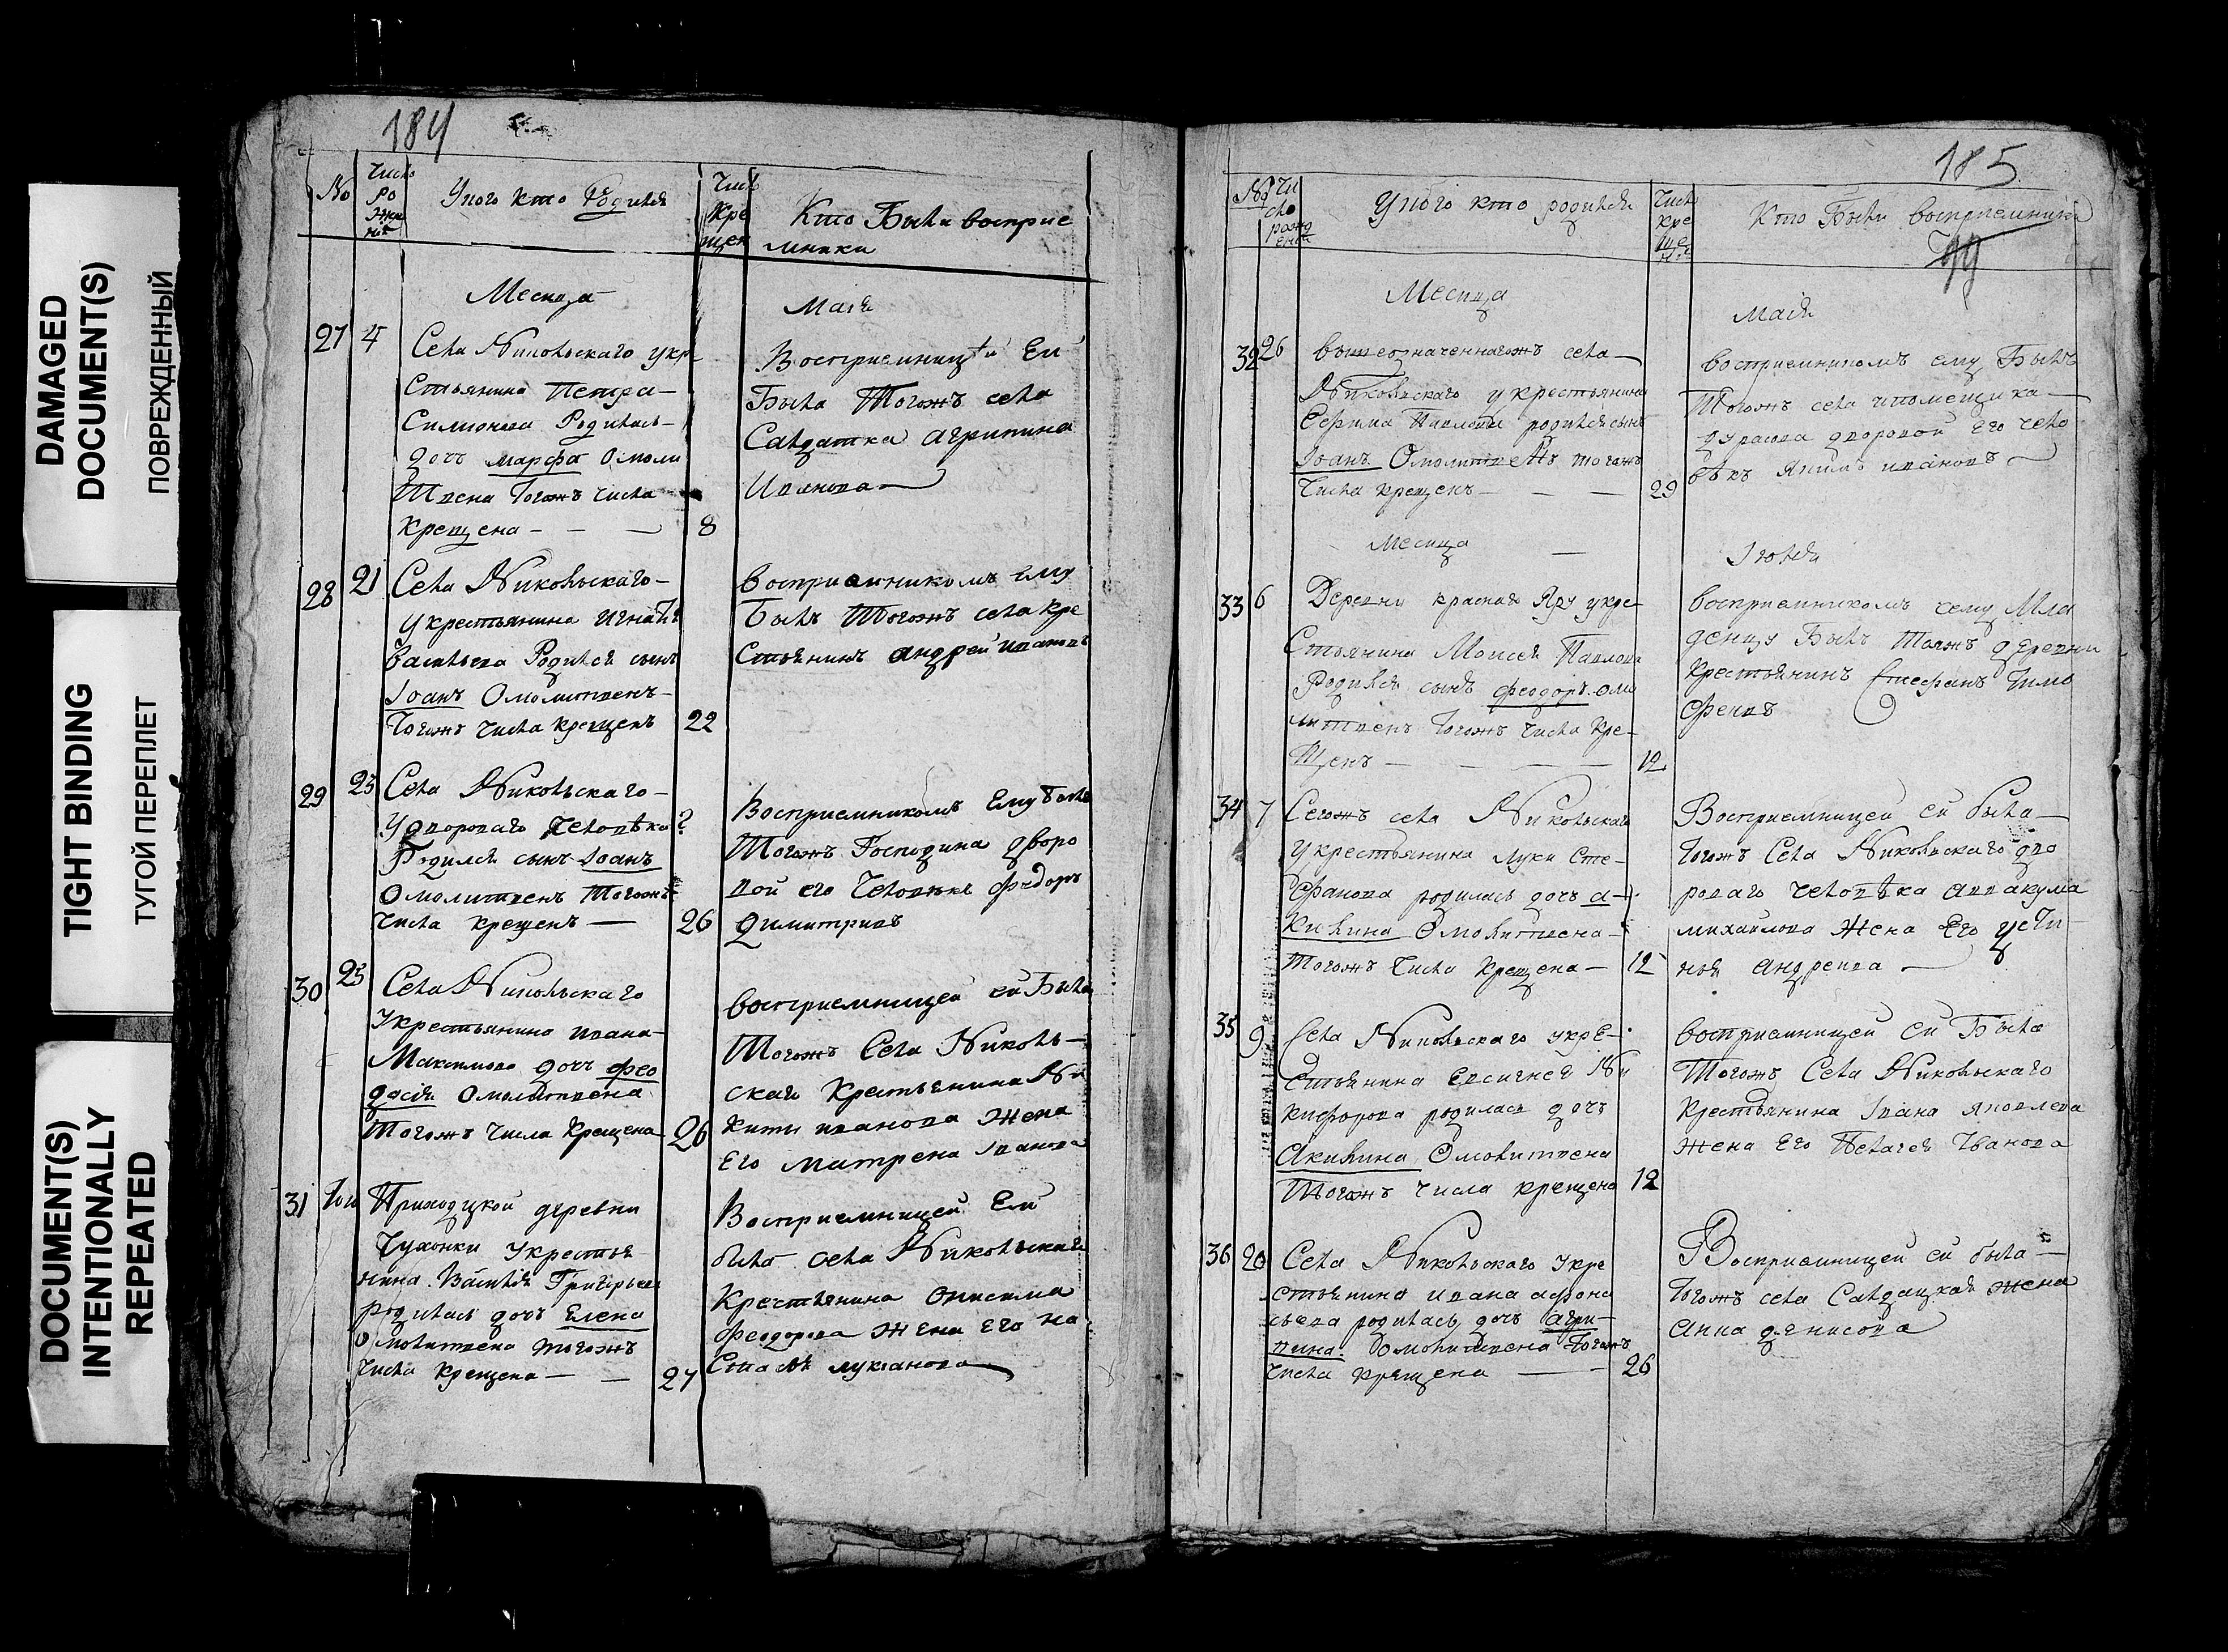 DAMAGED
DOCUMENT(S)
ПОВРЕЖДЕННЫЙ
TIGHT BINDING
ТУГОЙ ПЕРЕПЛЕТ
DOCUMENT(S)
INTENTIONALLY
REPEATED
184
No Число рожде Уного кто Родился Число Крещен Кто Были восприе
мники
Месяца
Маія
27 4 Села Николскаго укре
стьянина Петра
Симионова Родилась
дочь марфа Омоли
твена тогожъ числа
крещена 8
Восприемницей Ей
Была Тогожъ села
Салдатка агрипина
Иванова
28 21 Села Никольскаго
укрестьянина Игнатья
Васильева Родился сынъ
Іоанъ Омолитвенъ
тогожъ числа крещенъ 22
восприемникомъ ему
Былъ Тогожъ села кре
стьянинъ андрей ивановъ
29 23 Села Никольскаго
Удвороваго человѣка ?
Родился сынъ Іоанъ
Омолитвенъ Тогожъ
числа крещенъ 26
Восприемникомъ Ему былъ
Тогожъ Господина дворо
вой его Человѣкъ Федоръ
Димитривъ
30 23 Села Никольскаго
Укрестьянина ивана
Максимова дочь фео
досія Омолитвена
Тогожъ числа Крещена 26
восприемницей ей Была
Тогожъ Села Николь
скаго Крестьянина Ни
киты иванова Жена
Его Матрена Іванова
31 того Приходцкой деревни
Чухонки Укрестья
нина Василія Григорьева
родилась дочь Елена
Омолитвена тогожъ
числа Крещена 27
Восприемницей Ей
была села Никольскаго
Крестьянина Онисима
Феодорова Жена Его На
стасья лукіанова
185
No Число рождения Уного кто родился Число крещения Кто Были восприемники
99
Месяца
маія
32 26 вышеозначеннагожъ села
Никольскаго укрестьянина
Ефима Павлова родился сынъ
Іоанъ Омолитвенъ тогожъ
Числа крещенъ 29
восприемникомъ ему Былъ
Тогожъ села помещика
дурасова дворовой Его чело
вѣкъ Якимъ ивановъ
Месяца
Іюня
33 6 Деревни краснаго Яру укре
стьянина Моисея Павлова
Родился сынъ феодоръ омо
литвенъ тогожъ числа Кре
щенъ 12
восприемникомъ сему Мла
денцу Былъ тояжъ деревни
Крестьянинъ Стефанъ Тимо
феевъ
34 7 Сегожъ села Никольскаго
Укрестьянина Луки Сте
фанова родилась дочь а
килина Омолитвена
Тогожъ числа Крещена 12
Восприемницей ей была
тогожъ Села Никольскаго дво
роваго человѣка аввакума
михайлова Жена Его усти
нья андреива
35 9 Села Никольскаго укре
стьянина Евсигнея Ни
кифорова родилась дочь
Акилина Омолитвена
Тогожъ числа крещена 12
восприемницей ей Была
Тогожъ Села Никольскаго
Крестьянина Івана Яковлева
жена Его Пелагея Іванова
36 20 Села Никольскаго Укре
стьянина ивана афона
сьева родилась дочь агри
пина Омолитвена тогожъ
числа крещена 26
Восприемницей ей была
тогожъ села Салдацкая жена
Анна денисова